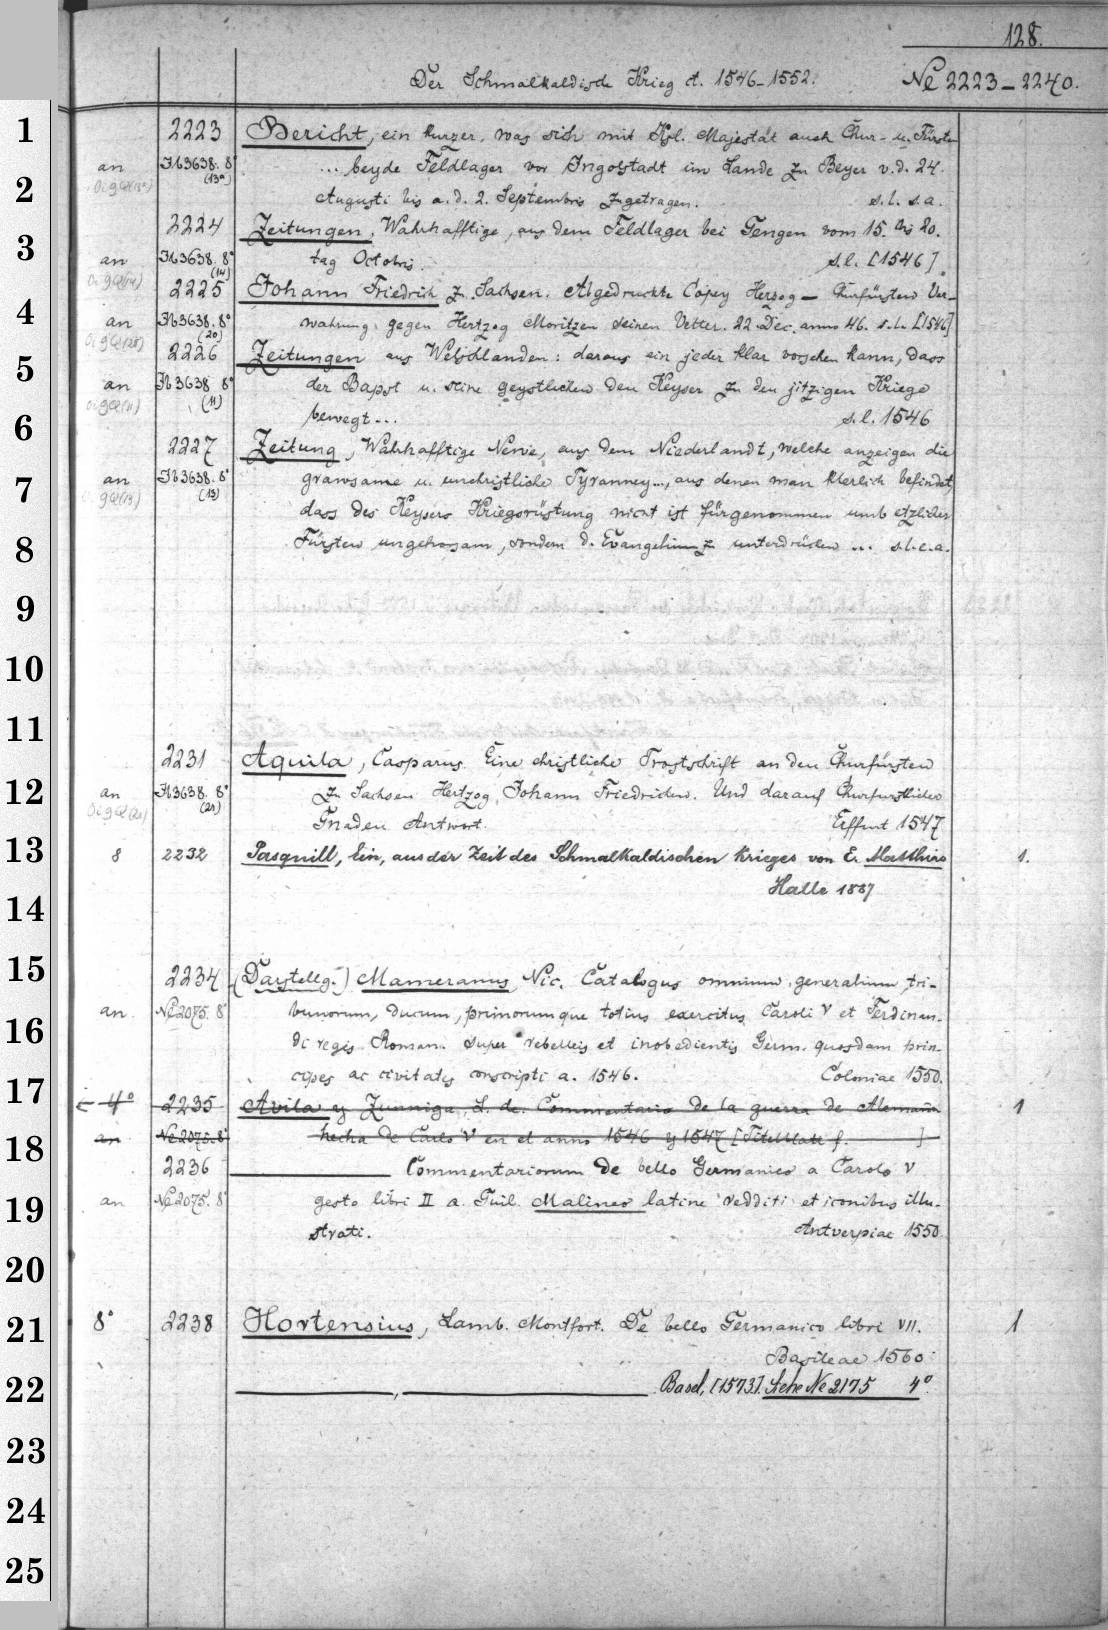 128.
Der Schmalkaldische Krieg ct. 1546-1552. Ne 2223-2240.
1 2223 Bericht, ein kurzer, was sich mit Kgl. Majestät auch Chur- u. Fürsten
an Ih3638. 8° (13a) ... beyde Feldlager vor Ingolstadt im Lande zu Beyer v.d. 24.
2 Augusti bis a.d. 2. Septembris zugetragen. s.l. s.a.
3 2224 Zeitungen, Wahrhafftige, aus dem Feldlager bei Gengen vom 15. bis 20.
an Ih3638. 8° (14) tag Octobris. s.l. [1546]
4 2225 Johann Friedrich z. Sachsen. Abgedruckte Copey Herzog — Churfürsten Ver-
an Ih3638. 8° (20) wahrung gegen Hertzog Moritzen seinen Vetter. 22 Dec. anno 46. s.l. [1546]
5 2226 Zeitungen aus Welschlanden: daraus ein jeder klar vorsehen kann, dass
an Ih3638 8° (11) der Bapst u. seine geystlichen den Keyser zu den jtzigen Kriege
6 bewegt... s.l. 1546
2227 Zeitung, Wahrhafftige Newe, aus dem Niederlandt, welche anzeigen die
7 an Ih3638. 8° (13) grawsame u. unchristliche Tyranney..., aus denen man klerlich befindet,
dass des Keysers Kriegsrüstung nicht ist fürgenommen umb etzlicher
8 Fürsten ungehorsam, sondern d. Evangelium z. unterdrücken ... s.l.e.a.
9
10
11
2231 Aquila, Casparus. Eine christliche Trostschrift an den Churfürsten
12 an Ih3638. 8° (21) zu Sachsen Hertzog Johann Friedrichen. Und darauf Churfurstlicher
Gnaden Antwort. Erffurt 1547
13 8 2232 Pasquill, Ein, aus der Zeit des Schmalkaldischen Krieges von E. Matthias 1.
Halle 1887
14
15 2234 (Darstellg.) Mameranus, Nic. Catalogus omnium generalium, tri-
an Ne2075. 8° bunorum, ducum, primorumque totius exercitus Caroli V et Ferdinan-
16 di regis Roman. super rebelleis et inobedientis Germ. quosdam prin-
cipes ac civitates conscripti a. 1546. Coloniae 1550.
17 4° 2235 Avila y Zunniga, L. de. Commentario de la guerra de Alemaña 1
18 an Ne2075. 8° hecha de Carlo V en el anno 1546 y 1547 [Titelblatt f. ]
2236 Commentariorum de bello Germanico a Carolo V
19 an Ne2075. 8° gesto libri II a Guil. Malineo latine redditi et iconibus illu-
strati. Antverpiae 1550
20
21 8° 2238 Hortensius, Lamb. Montfort. De bello Germanico libri VII. 1
Basileae 1560
22 Basel, [1573]. Siehe Ne 2175 4°
23
24
25